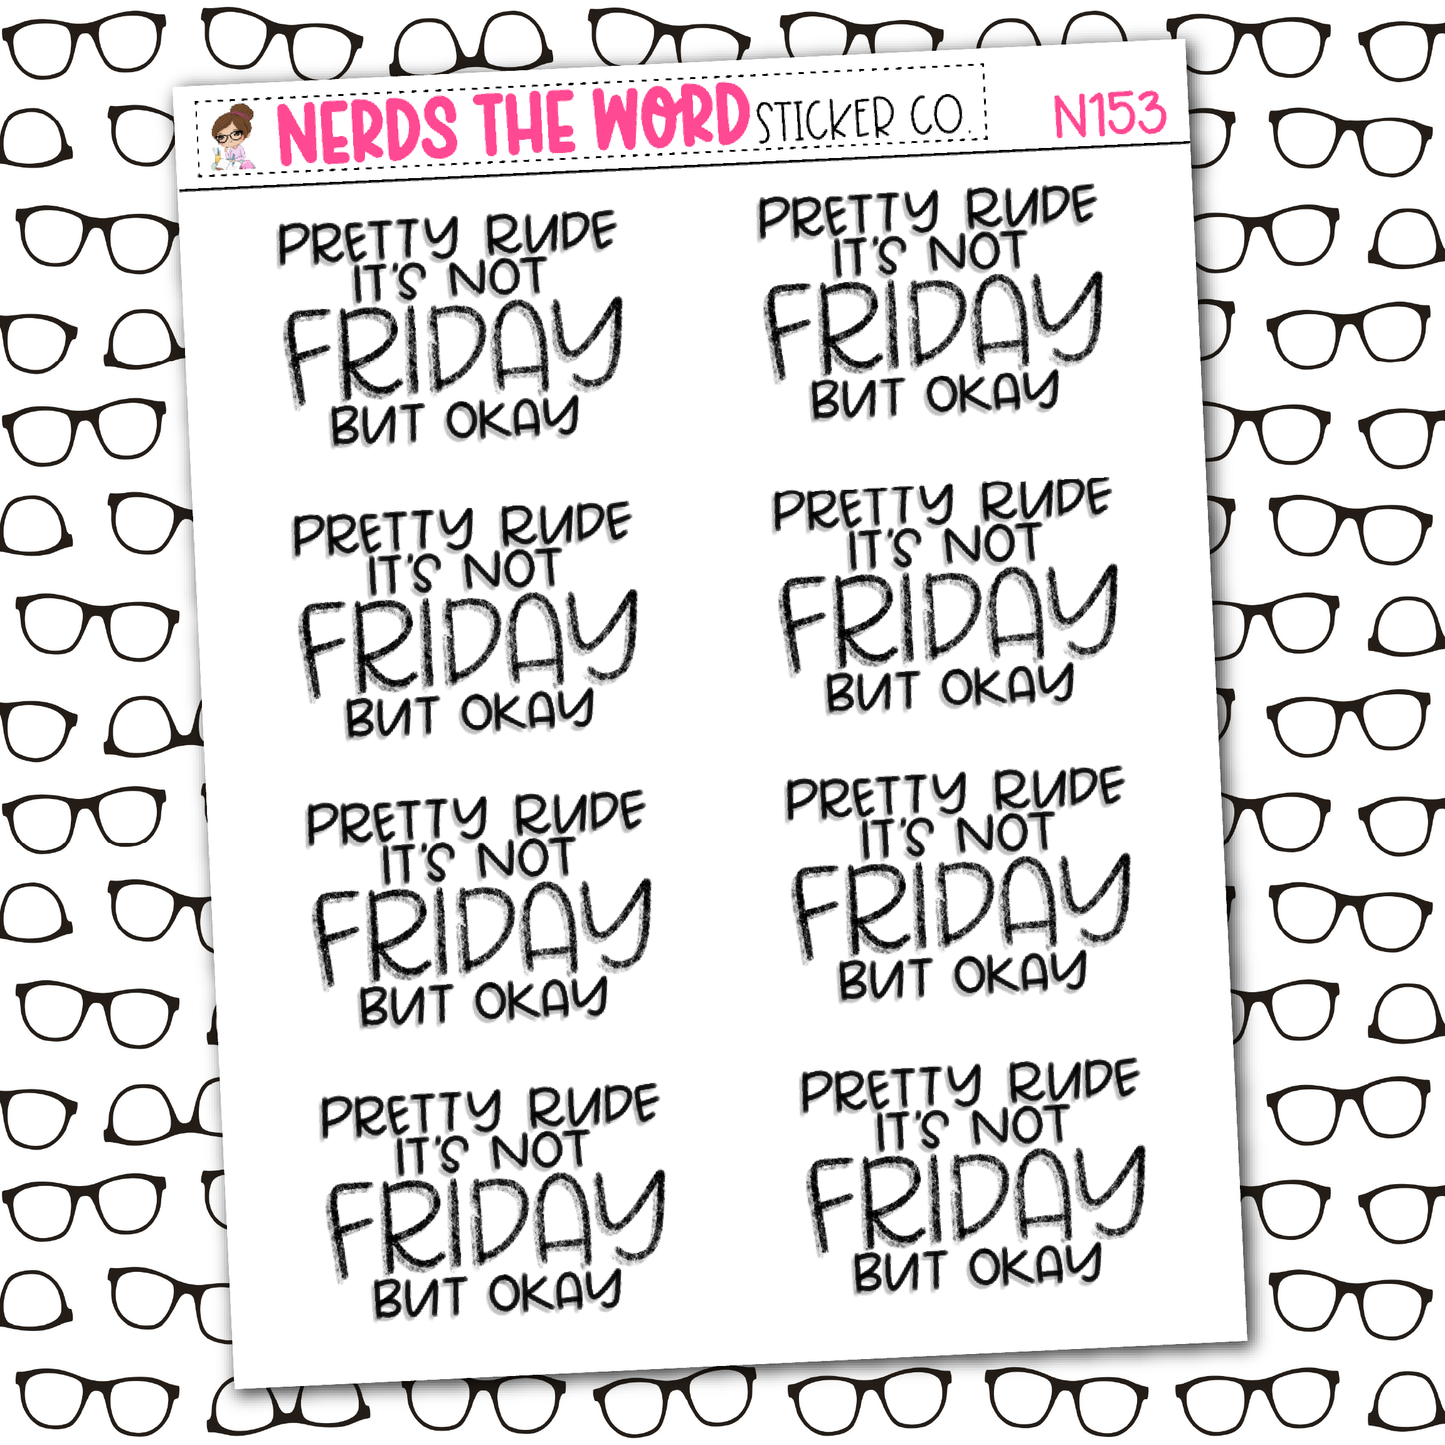 NERDS THE WORD STICKER CO. N153
PRETTY RUDE
IT'S NOT
FRIDAY
BUT OKAY
PRETTY RUDE
IT'S NOT
FRIDAY
BUT OKAY
PRETTY RUDE
IT'S NOT
FRIDAY
BUT OKAY
PRETTY RUDE
IT'S NOT
FRIDAY
BUT OKAY
PRETTY RUDE
IT'S NOT
FRIDAY
BUT OKAY
PRETTY RUDE
IT'S NOT
FRIDAY
BUT OKAY
PRETTY RUDE
IT'S NOT
FRIDAY
BUT OKAY
PRETTY RUDE
IT'S NOT
FRIDAY
BUT OKAY